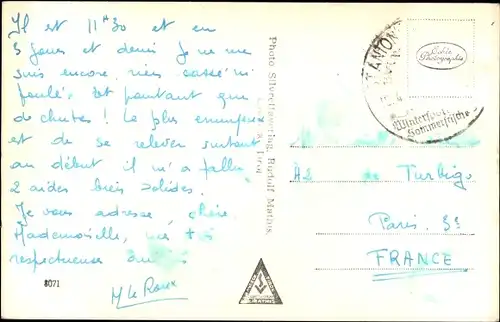 Il est 11ʰ30 et en
3 jours et demi je ne me
suis encore rien cassé ni
foulé, et pourtant que
de chutes! Le plus ennuyeux
est de se relever surtout
au début il m'a fallu
2 aides bien solides.
Je vous adresse, chère
Mademoiselle, mes
respectueuses
M Le Roux
8071
Rudolf Mathis
ANTON
Winterſport
Sommerfriſche
Echte
Photographie
de Turbigo
Paris 3ᵉ
FRANCE